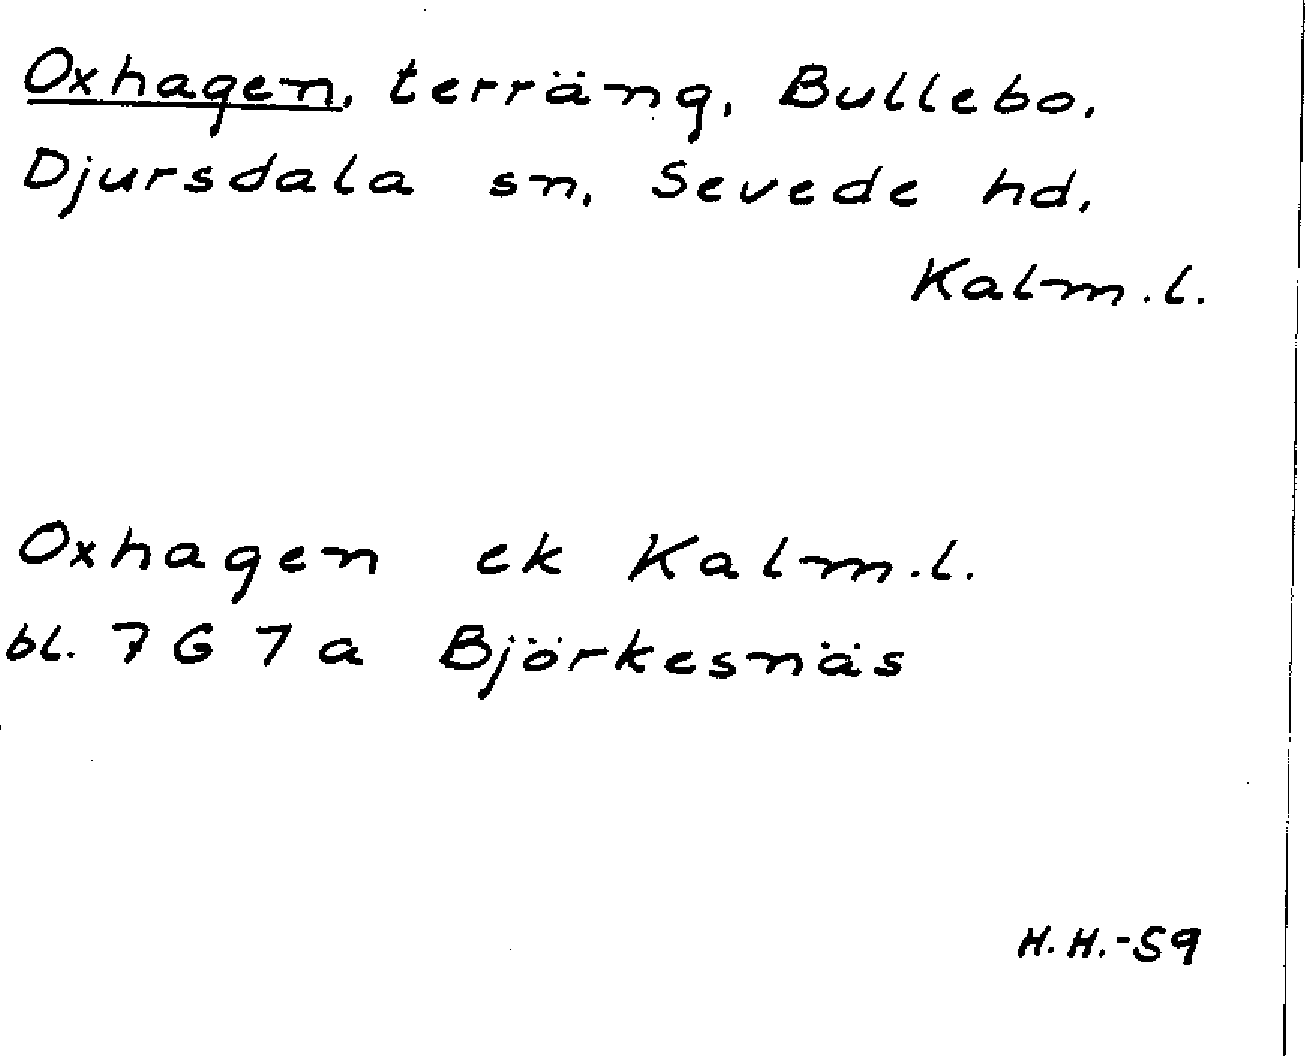 Oxhagen, terräng, Bullebo,
Djursdala sn, Sevede hd,
Kalm.l.
Oxhagen ek Kalm.l.
bl. 7 G 7 a Björkesnäs
H.H.-59